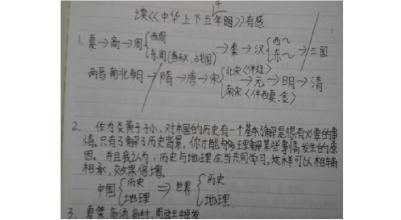 读《中华上下五千年》有感
1. 夏→商→周 西周 东周(春秋、战国) →秦→汉 西汉 东汉 →三国
两晋南北朝→隋→唐→宋 北宋 南宋 →元→明→清
2. 作为炎黄子孙,对本国的历史有一个基本了解是很有必要的事
情。只有了解了历史背景,你才能够理解某些事情发生的原
因。并且我认为,历史与地理应当共同学习,这样可以相辅
相承,效果倍增。
中国 历史 地理 ⇒世界 历史 地理
3.